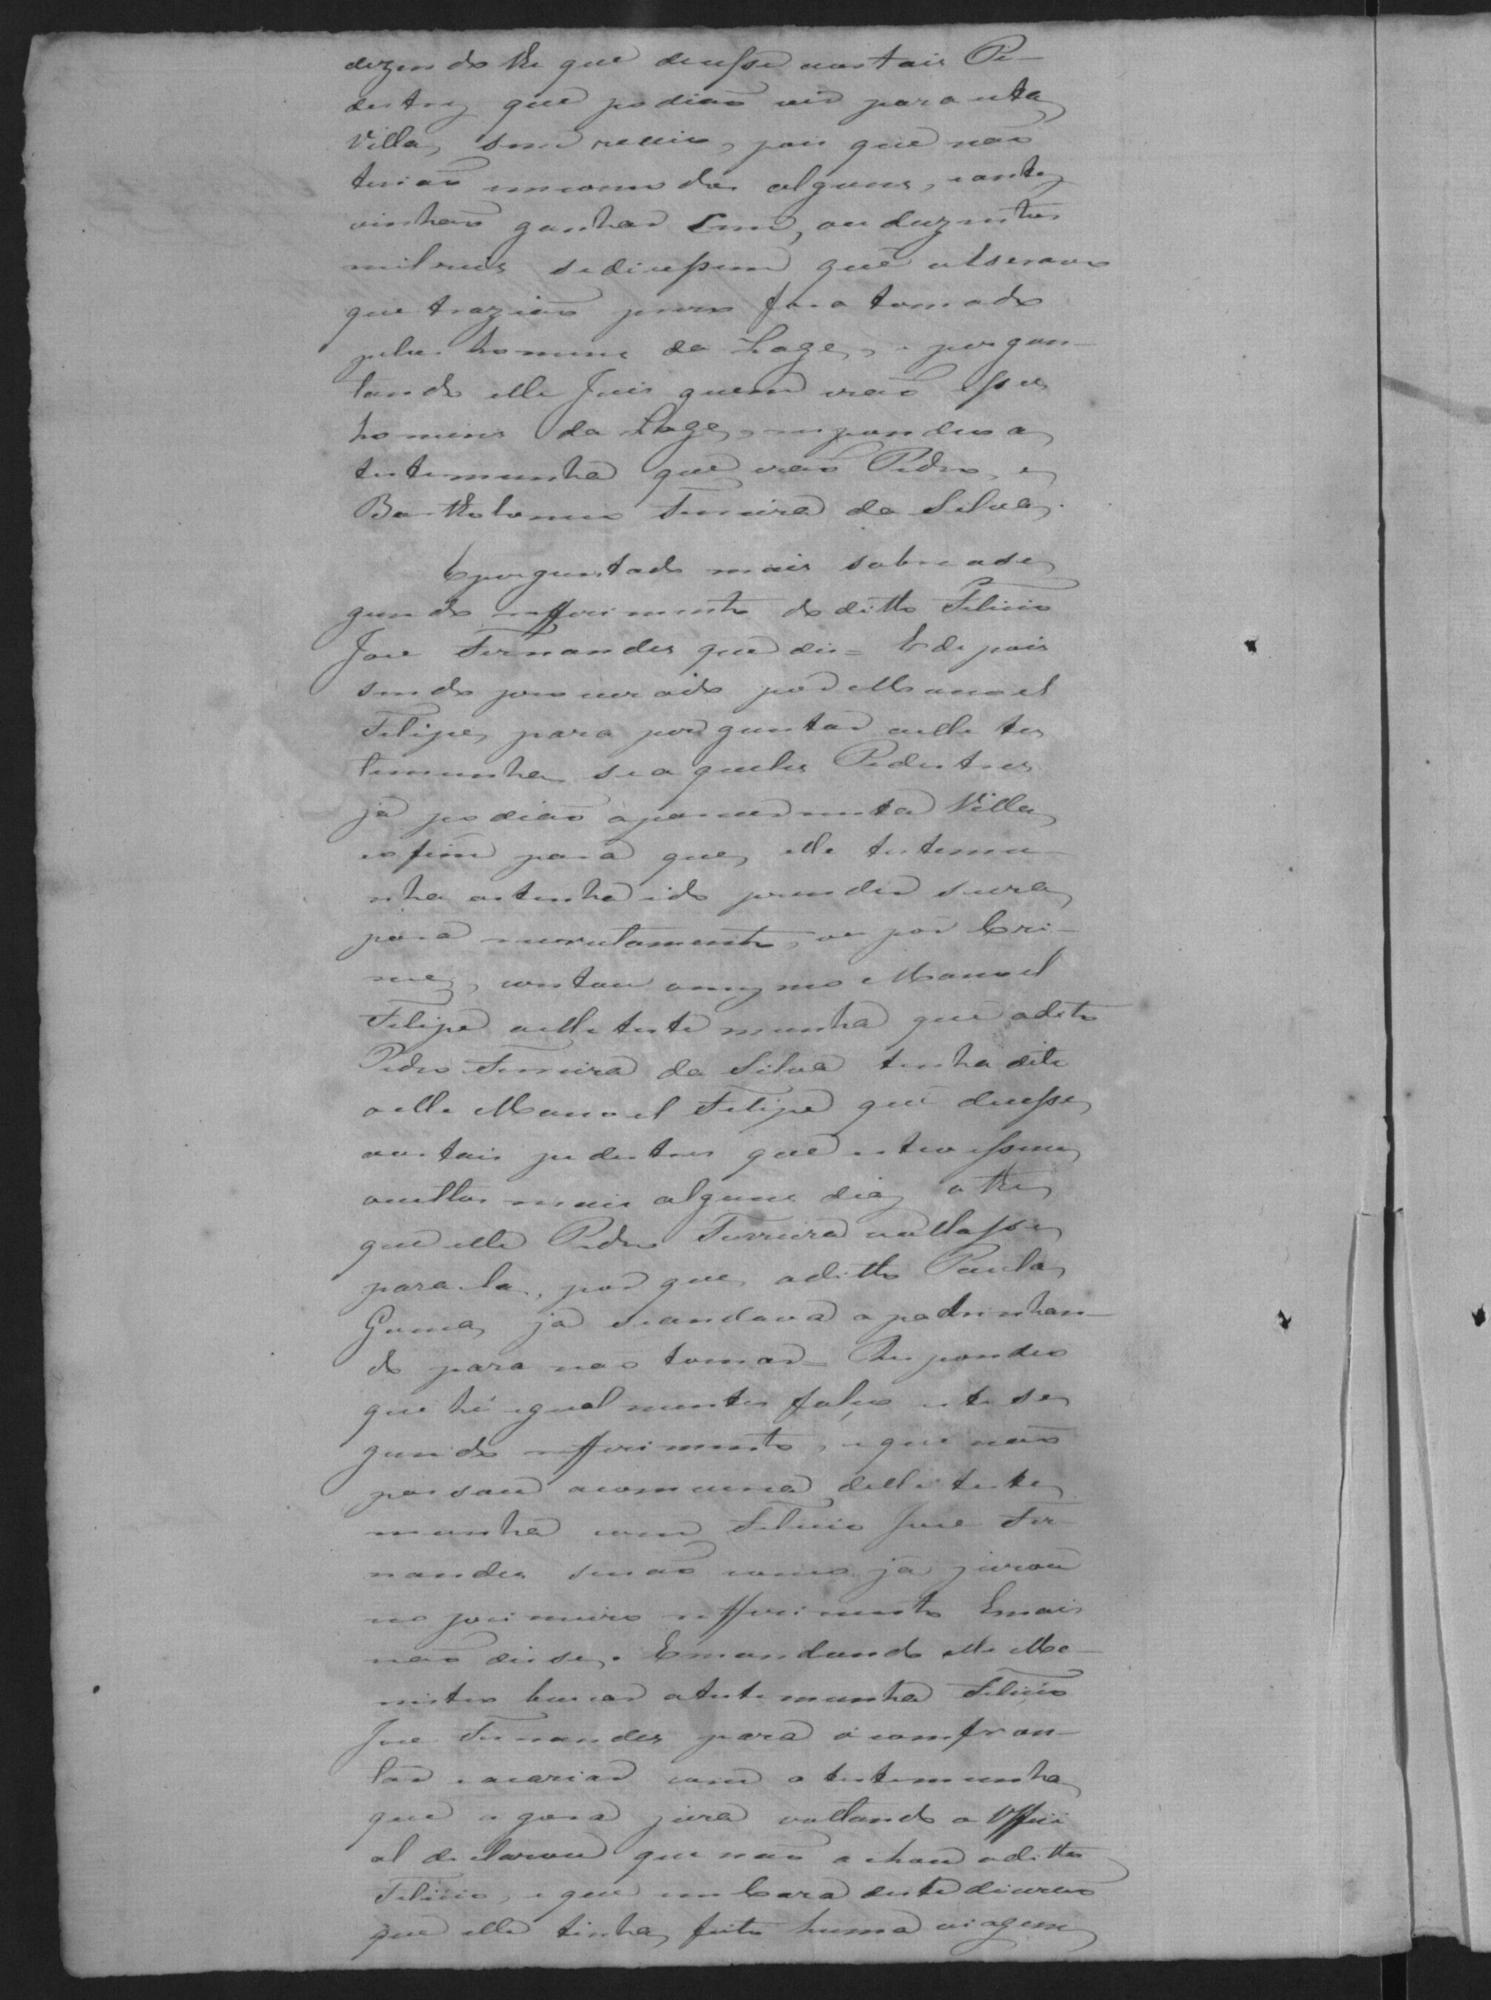 dizendo lhe que dicesse aos tais Pe-
destres que podião vir para esta
Villa, sem receio, pois que não
terião incomodos alguns, e antes
vinhão ganhar Cem, ou duzentos
mil reis se dicessem que o escravo
que trazião prezo fora tomado
pelos homens da Lage, e pergun-
tando elle Juis quem erão esses
homens da Lage, respondeo a
testemunha que erão Pedro, e
Bartholomeo Ferreira da Silva.
E perguntado mais sobre o se
gundo refferimento do ditto Felicio
Jose Fernandes que dis = E depois
sendo procurado por Manoel
Felipe, para perguntar a elle tes
temunha se aqueles Pedestres
já podião aparecer nesta Villa,
e o fim para que, elle testemu-
nha os tenha ido prender se era
para recrutamento, ou por Cri-
me, contou o mesmo Manoel
Felipe a elle testemunha que o dito
Pedro Ferreira da Silva tinha dito
a elle Manoel Felipe que dicesse
aos tais pedestres que estivessem
ocultos mais alguns dias athe
que elle Pedro Ferreira voltasse
para la, por que o ditto Paula
Gomes já se andava apadrinhan-
do para nos tomar = Respondeo
que hé igualmente falso este se
gundo refferimento, e que não
pasou a conversa delle teste
munha com Felicio Jose Fer-
nandes senão como já jurou
no primeiro refferimento E mais
não disse. E mandando elle Me-
nistro buscar a testemunha Felicio
Jose Fernandes para o comfron-
tar e acariar com a testemunha
que agora jura voltando o Offici
al declarou que não achou o ditto
Felicio, e que em Caza deste dicerão
que elle tinha feito huma viagem